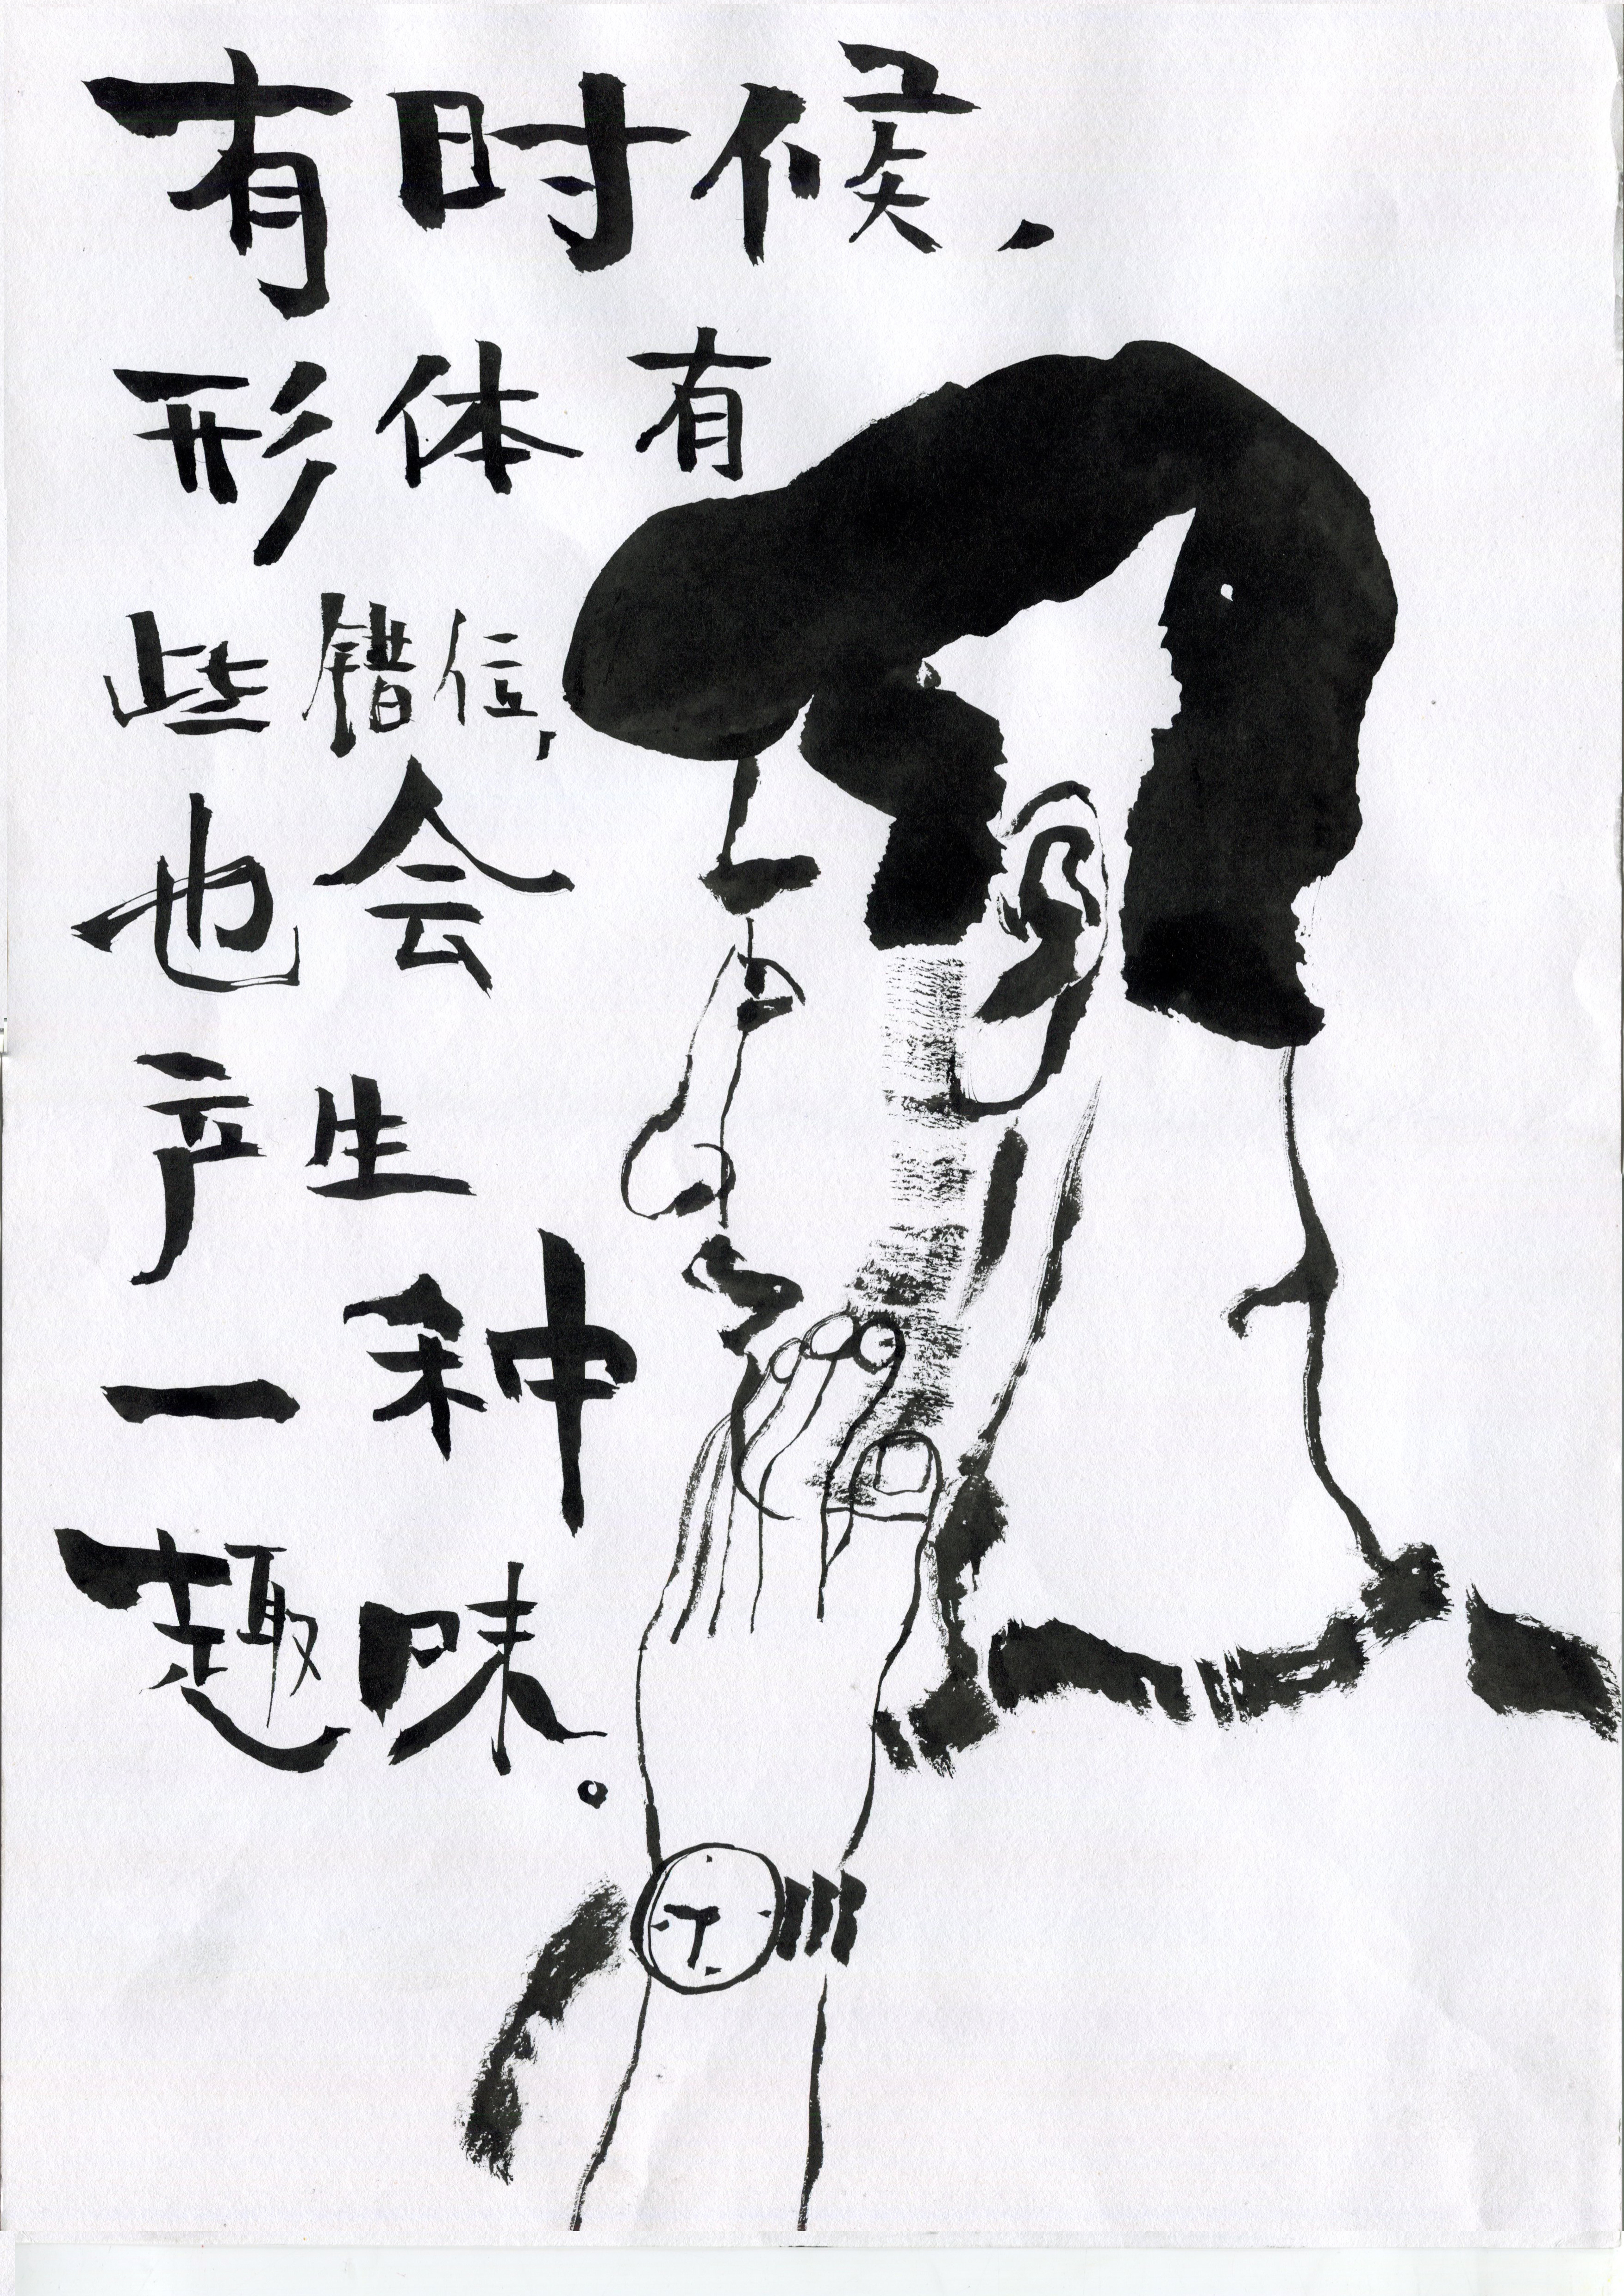 有时候，
形体有
些错位，
也会
产生
一种
趣味。